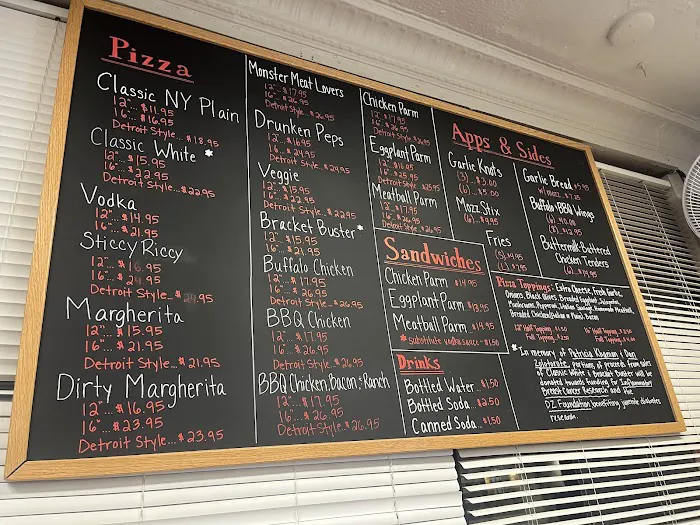 Pizza
Classic NY Plain
12"... $11.95
16"... $16.95
Detroit Style... $18.95
Classic White *
12"... $15.95
16"... $22.95
Detroit Style... $22.95
Vodka
12"... $14.95
16"... $21.95
Sticcy Riccy
12"... 16.95
16"... $ 24.95
Detroit Style... $24.95
Margherita
12"... $15.95
16"... $21.95
Detroit Style... $21.95
Dirty Margherita
12"... $16.95
16"... $23.95
Detroit Style... $23.95
Monster Meat Lovers
12"... $17.95
16"... $26.95
Detroit Style... $26.95
Drunken Peps
12"... $16.95
16"... $24.95
Detroit Style... $24.95
Veggie
12"... $15.95
16"... $22.95
Detroit Style... $22.95
Bracket Buster *
12"... $15.95
16"... $21.95
Buffalo Chicken
12"... $17.95
16"... $26.95
Detroit Style... $26.95
BBQ Chicken
12"... $17.95
16"... $26.95
Detroit Style... $26.95
BBQ Chicken, Bacon & Ranch
12"... $17.95
16"... $26.95
Detroit Style... $26.95
Chicken Parm
12"... $17.95
16"... $26.95
Detroit Style... $26.95
Eggplant Parm
12"... $16.95
16"... $25.95
Detroit Style... $25.95
Meatball Parm
12"... $17.95
16"... $26.95
Detroit Style... $26.95
Sandwiches
Chicken Parm $14.95
Eggplant Parm $13.95
Meatball Parm $14.95
* substitute vodka sauce - $1.50
Drinks
Bottled Water... $1.50
Bottled Soda... $2.50
Canned Soda... $1.50
Apps & Sides
Garlic Knots
(3)... $3.00
(6)... $5.00
Mozz Stix
(6)... $9.95
Fries
Garlic Bread $5.95
w/ mozz
Buffalo & BBQ Wings
Buttermilk-Battered
Chicken Tenders
Pizza Toppings: Extra Cheese, Fresh Garlic,
Onions, Black Olives, Breaded Eggplant,
Mushrooms, Pepperoni, Italian Sausage, Homemade Meatball,
Breaded Chicken (Italian or Plain), Bacon
12" Half Topping
Full Topping
16" Half Topping
Full Topping
* In memory of Patricia & Dan
portions of proceeds from sales
of Classic White & Bracket Buster will be
donated towards funding for Inflammatory
Breast Cancer Research and the
DZ Foundation benefiting
research.